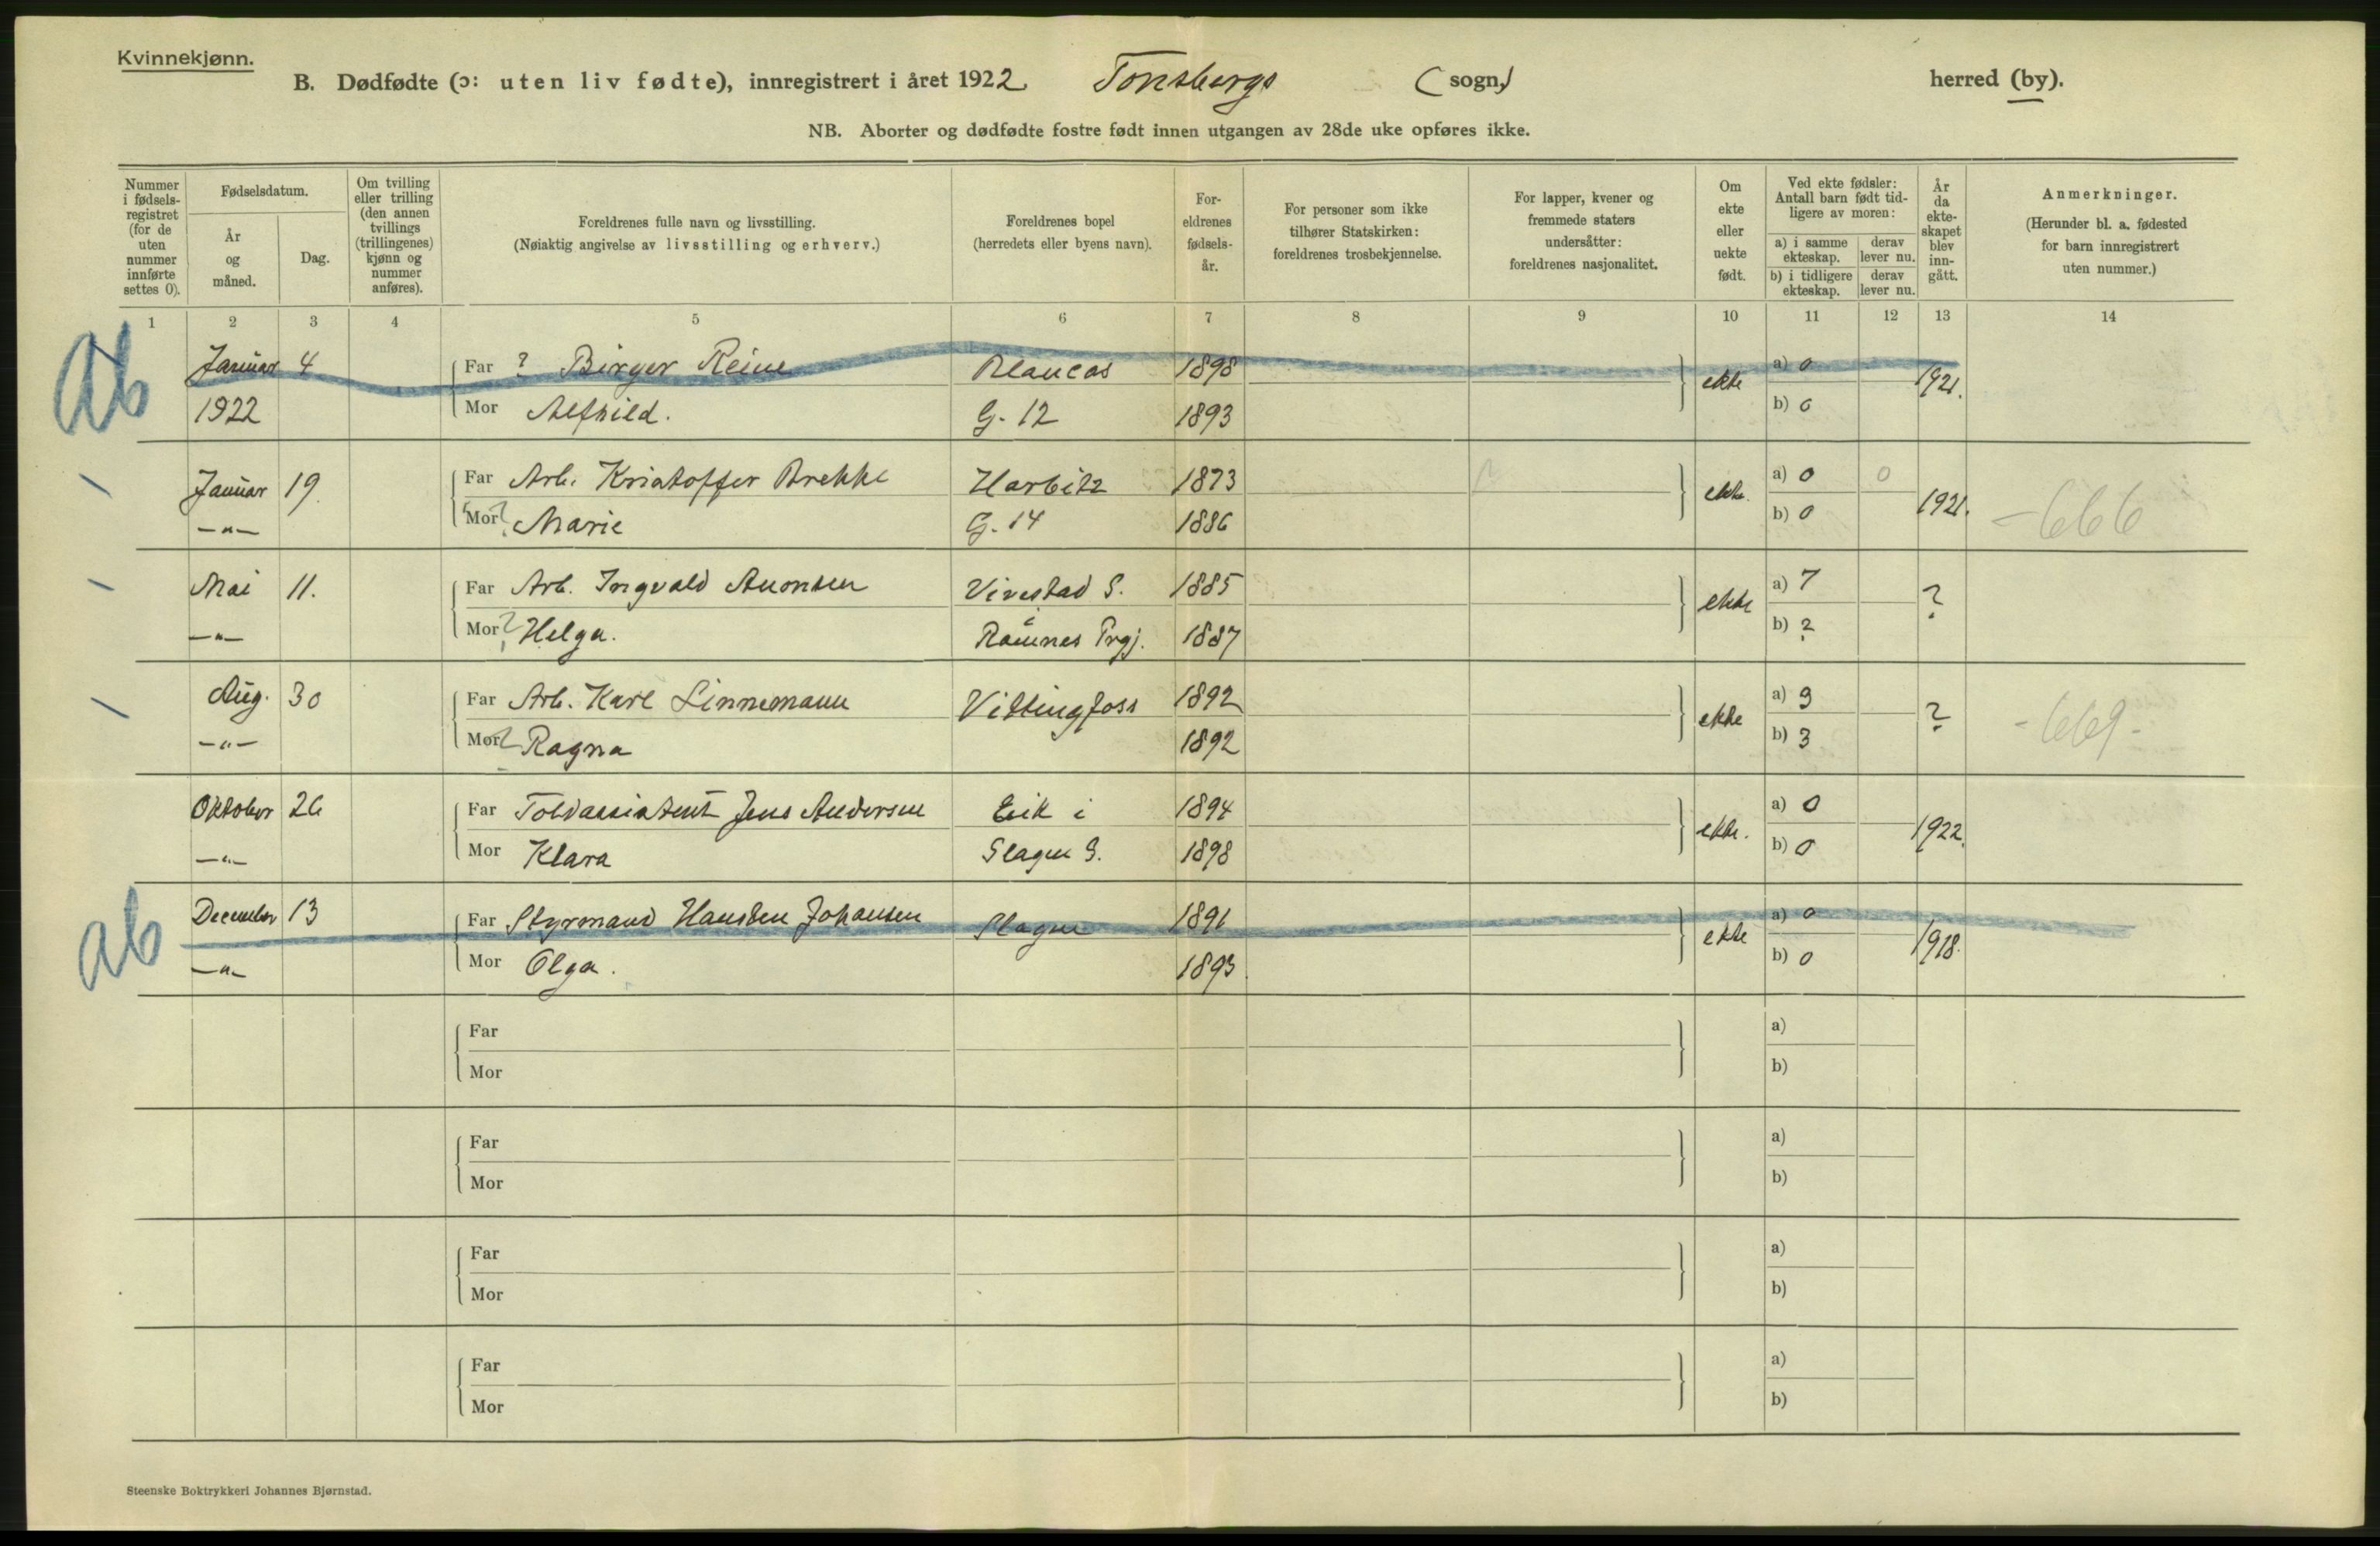 Kvinnekjønn.
B. Dødfødte (ɔ: uten liv fødte), innregistrert i året 1922 Tønsbergs (sogn,) herred (by).
NB. Aborter og dødfødte fostre født innen utgangen av 28de uke opføres ikke.
Nummer i fødsels-registret (for de uten nummer innførte settes 0).
Fødselsdatum.
År og måned.
Dag.
Om tvilling eller trilling (den annen tvillings (trillingenes) kjønn og nummer anføres).
Foreldrenes fulle navn og livsstilling.
(Nøiaktig angivelse av livsstilling og erhverv.)
Foreldrenes bopel
(herredets eller byens navn).
For-eldrenes fødsels-år.
For personer som ikke tilhører Statskirken: foreldrenes trosbekjennelse.
For lapper, kvener og fremmede staters undersåtter: foreldrenes nasjonalitet.
Om ekte eller uekte født.
Ved ekte fødsler: Antall barn født tid-ligere av moren:
a) i samme ekteskap.
derav lever nu.
b) i tidligere ekteskap.
derav lever nu.
År da ekte-skapet blev inn-gått.
Anmerkninger.
(Herunder bl. a. fødested for barn innregistrert uten nummer.)
1 2 3 4 5 6 7 8 9 10 11 12 13 14
ab Januar 4 Far ? Birger Reine 1898 ekte a) 0 1921.
1922 Mor Alfhild. G. 12 1893 b) 0
Januar 19. Far Arb. Kristoffer Brekke Harbitz 1873 ekte. a) 0 0 1921. -666
-"- Mor ? Marie G. 14 1886 b) 0
Mai 11. Far Arb. Ingvald 1885 ekte a) 7 ?
-"- Mor ? Helga. Ramnes Prgj. 1887 b) ?
Aug. 30 Far Arb. Karl Linnemann Vittingfoss 1892 ekte a) 9 ? -669-
-"- Mor ? Ragna 1892 b) 3
Oktober 26 Far Toldassistent Jens Andersen Eik i 1894 ekte. a) 0 1922.
-"- Mor Klara Slagen S. 1898 b) 0
ab December 13 Far Styrmand Johansen Slagen 1891 ekte a) 0 1918.
-"- Mor Olga. 1893 b) 0
Far a)
Mor b)
Far a)
Mor b)
Far a)
Mor b)
Far a)
Mor b)
Steenske Boktrykkeri Johannes Bjørnstad.